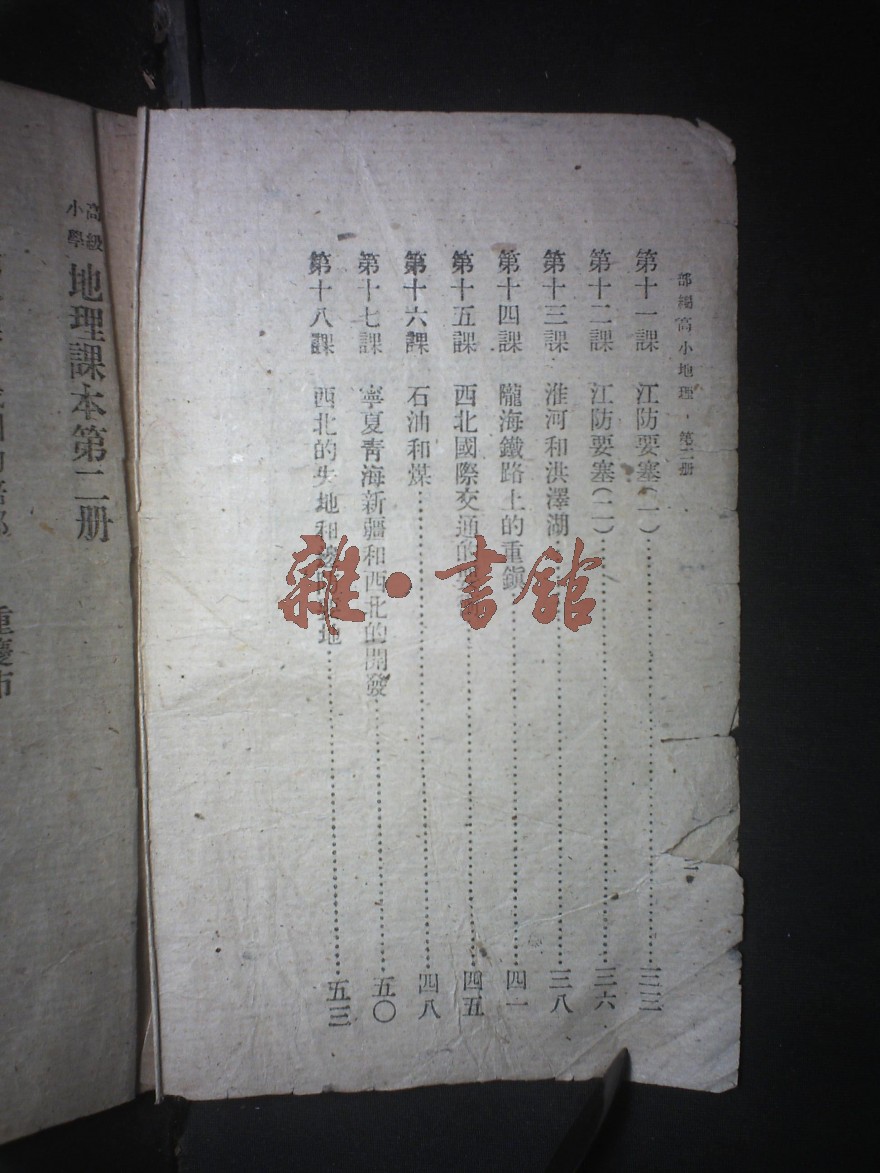 部編高小地理，第二册
第十一課　江防要塞(一)……三三
第十二課　江防要塞(二)……三六
第十三課　淮河和洪澤湖……三八
第十四課　隴海鐵路上的重鎭……四一
第十五課　西北國際交通的……四五
第十六課　石油和煤……四八
第十七課　寧夏青海新疆和西北的開發……五〇
第十八課　西北的失地和地……五三
雜·書館
高級小學 地理課本第二册
重慶市